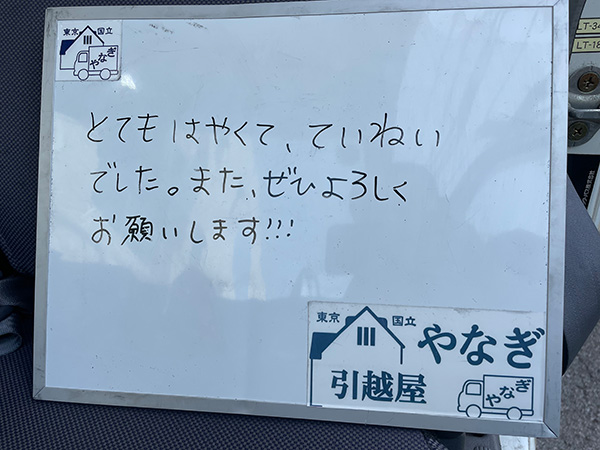 東京 国立
やなぎ
とてもはやくて、ていねい
でした。また、ぜひよろしく
お願いします!!!
東京 国立
やなぎ
引越屋
やなぎ
LT-34
LT-18